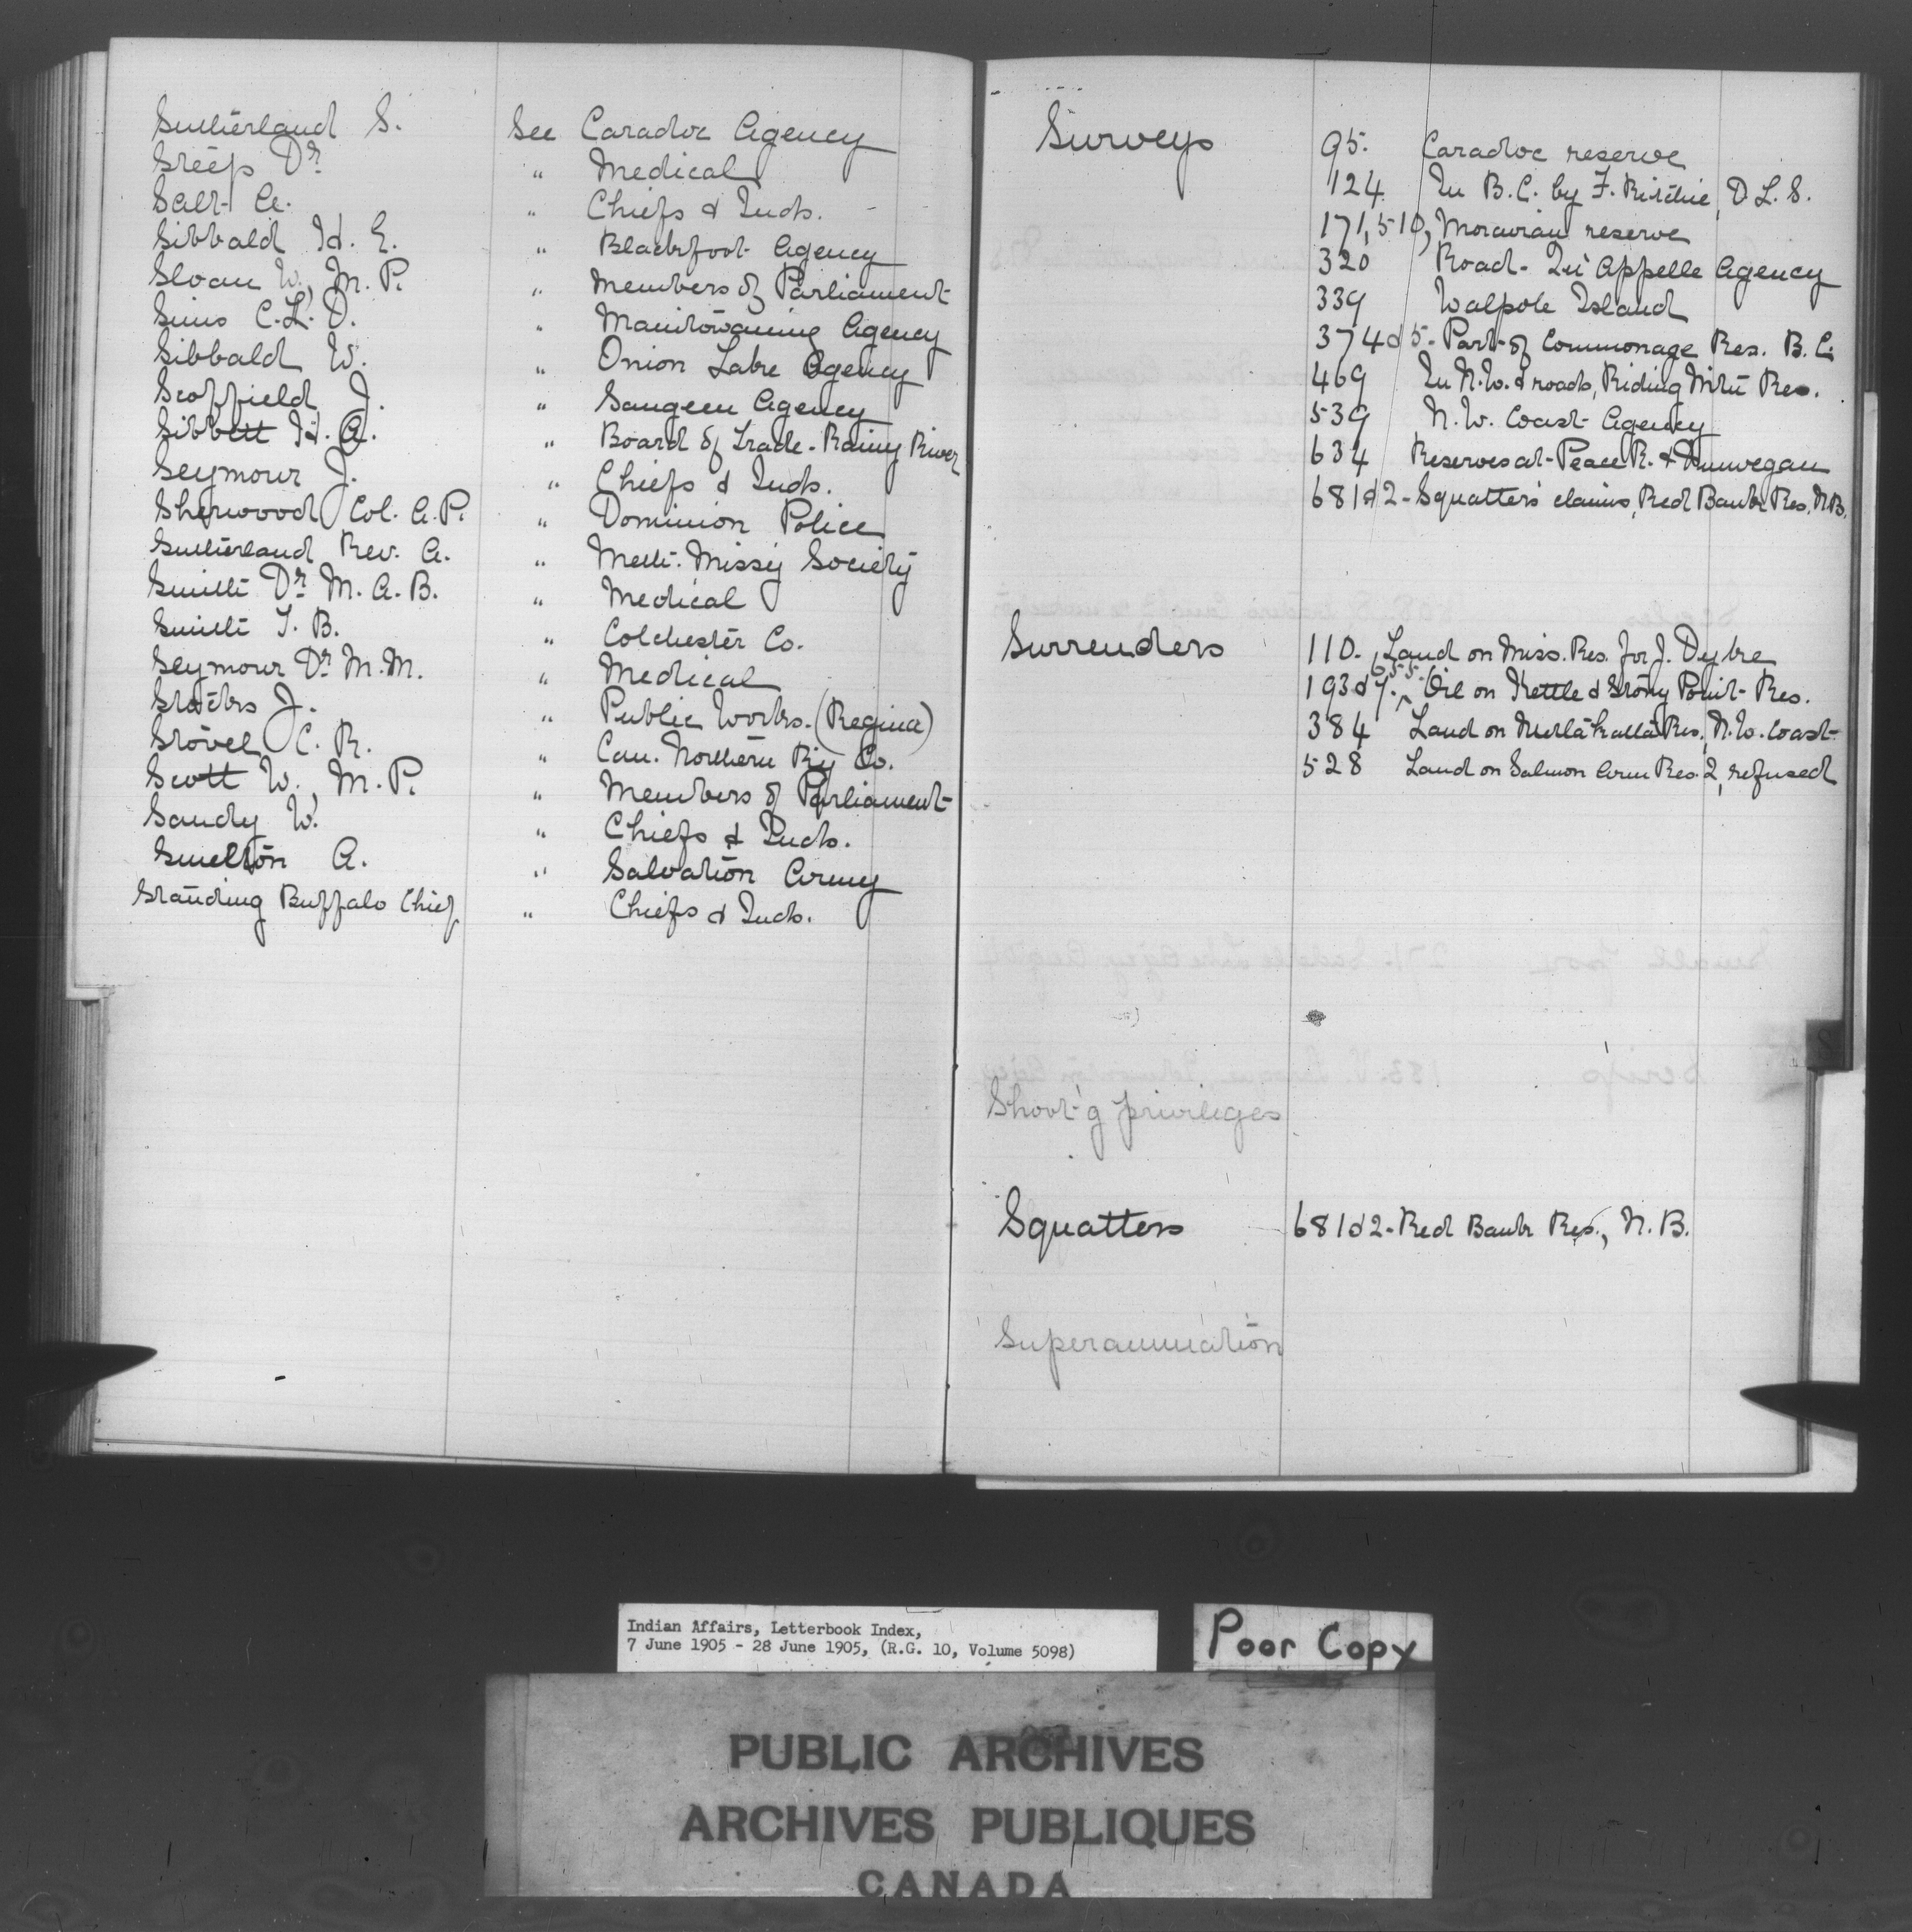 Sutherland S. See Caradoc Agency
Steep Dr " Medical
Salt A. " Chiefs & Inds.
Sibbald H. E. " Blackfoot Agency
Sloan W., M. P. " Members of Parliament
Sims C. L. D. " Manitowaning Agency
Sibbald W. " Onion Lake Agency
Scoffield J. " Saugeen Agency
Sibbett H. A. " Board of Trade - Rainy River
Seymour J. " Chiefs & Inds.
Sherwood Col. A. P. " Dominion Police
Sutherland Rev. A. " Meth. Missy Society
Smith Dr M. A. B. " Medical
Smith T. B. " Colchester Co.
Seymour Dr M. M. " Medical
Stocks J. " Public Works. (Regina)
Stovel C. R. " Can. Northern Ry Co.
Scott W., M. P. " Members of Parliament
Sandy W. " Chiefs & Inds.
Smelton A. " Salvation Army
Standing Buffalo Chief " Chiefs & Inds.
Surveys 95. Caradoc reserve
124 In B. C. by F. Ritchie, D. L. S.
171, 510, Moravian reserve
320 Road - Qu'Appelle Agency
339 Walpole Island
374 & 5 - Part of Commonage Res. B. C.
469 In N. W. & roads, Riding Mtn Res.
539 N. W. Coast Agency
634 Reserves at Peace R. & Dunvegan
681 & 2 - Squatters' claims, Red Bank Res. N. B.
Surrenders 110. Land on Miss. Res. for J. Dyke
193 & 7. 655. Oil on Kettle & Stony Point Res.
384 Land on Metlakatla Res., N. W. Coast
528 Land on Salmon Arm Res. 2, refused
Shoot'g privileges
Squatters 681 & 2 - Red Bank Res., N. B.
Superannuation
Indian Affairs, Letterbook Index,
7 June 1905 - 28 June 1905, (R.G. 10, Volume 5098)
Poor Copy
PUBLIC ARCHIVES
ARCHIVES PUBLIQUES
CANADA